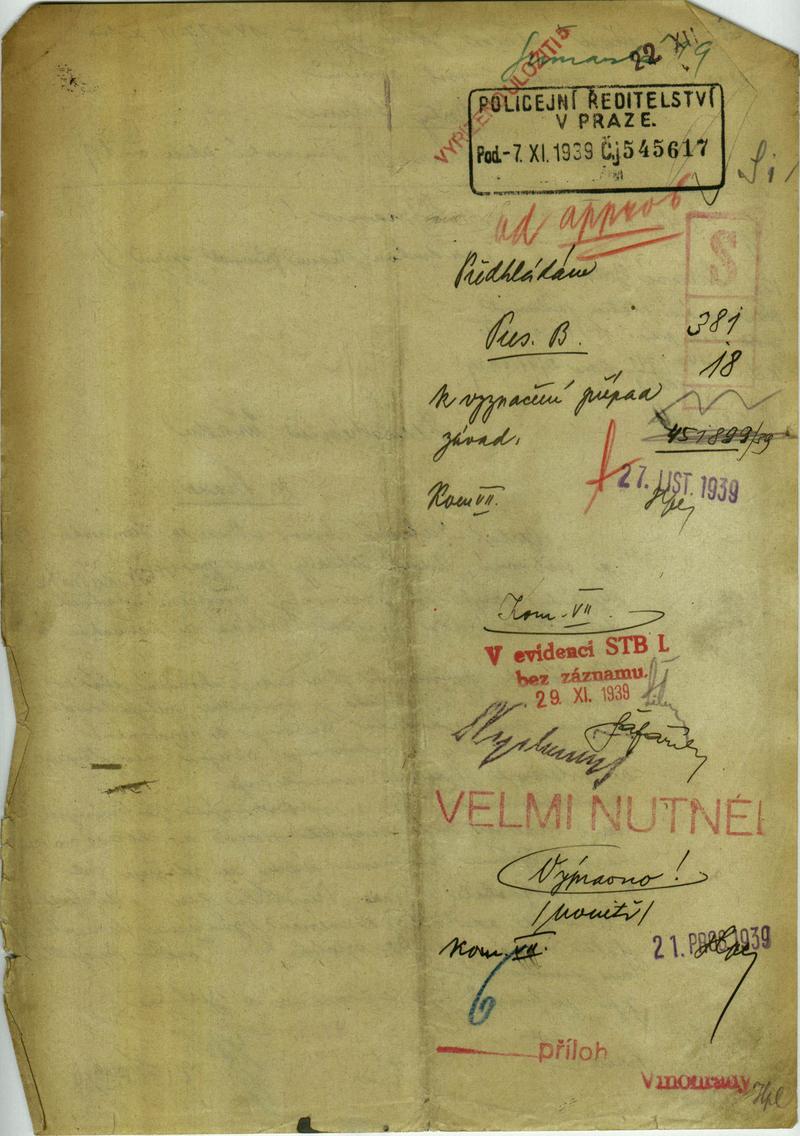 22 XII
VYŘÍZENO ULOŽITI
POLICEJNÍ ŘEDITELSTVÍ
V PRAZE.
Pod. -7. XI. 1939 Čj 545617
ad approb
S
Předhládáno
Pres. B.
381
18
k vyznačení případ
závad.
451899/39
Kom VII.
27. LIST. 1939
Kom. VII
V evidenci STB I.
bez záznamu.
29. XI. 1939
VELMI NUTNÉ!
Výpravno!
/vnitř/
Kom. VII.
21. PROS. 1939
6
příloh
Vinohrady